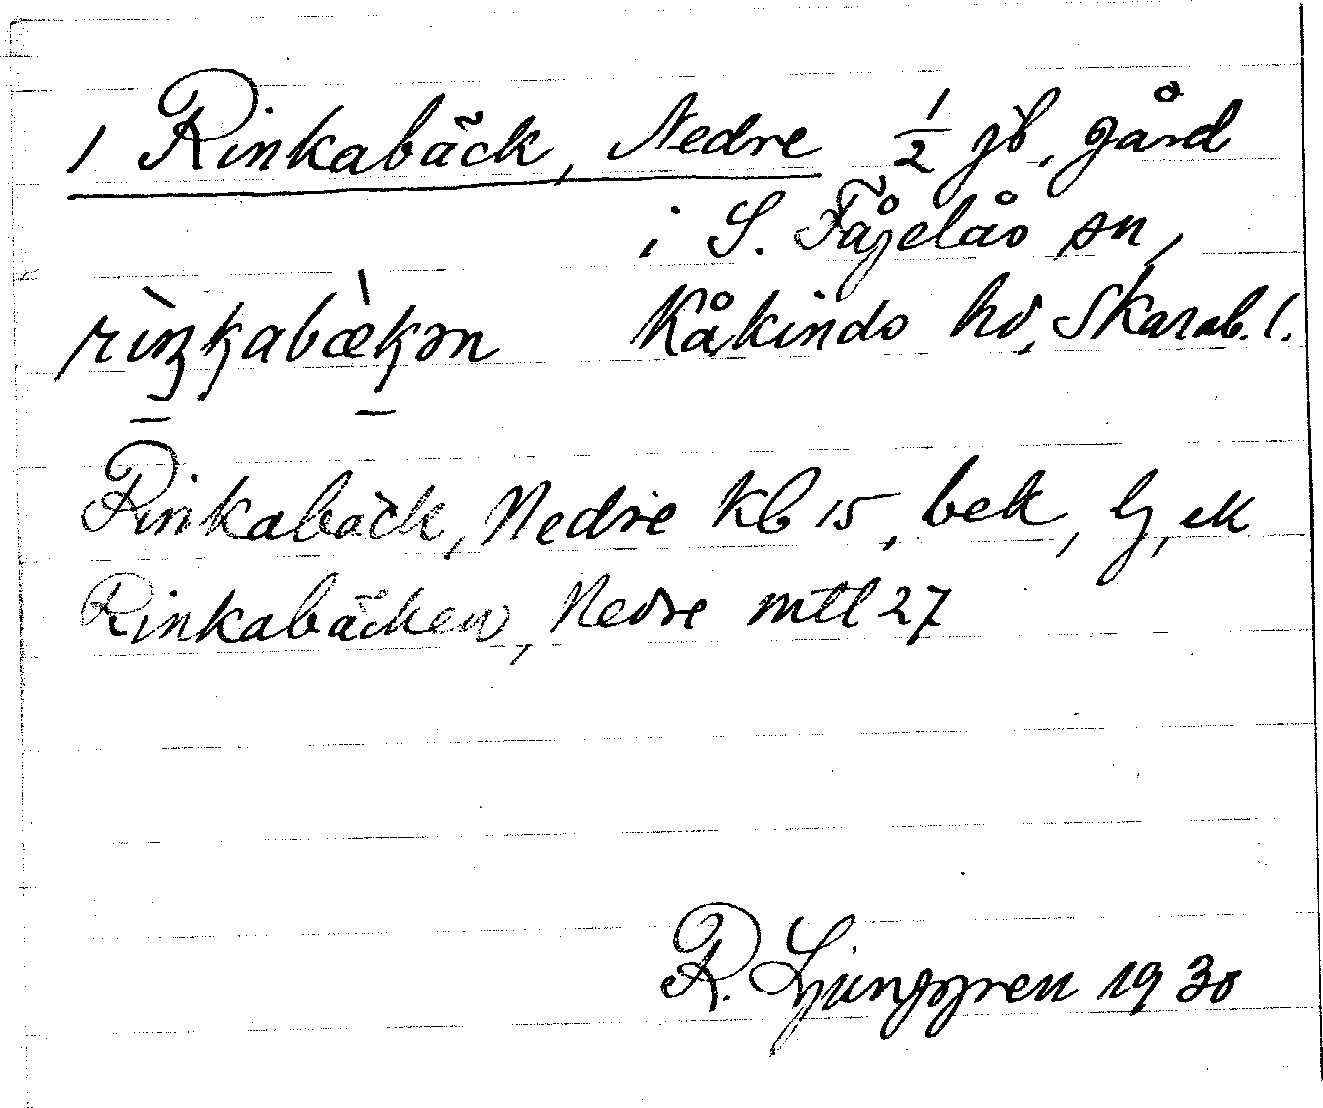 1 Rinkabäck, Nedre ½ jb. gård
i S. Fågelås sn,
Kåkinds hd, Skarab. l.
Rinkabäck, Nedre Kb 15, bek, lj, ek
Rinkabäcken, Nedre mtl 27
R. Ljunggren 1930